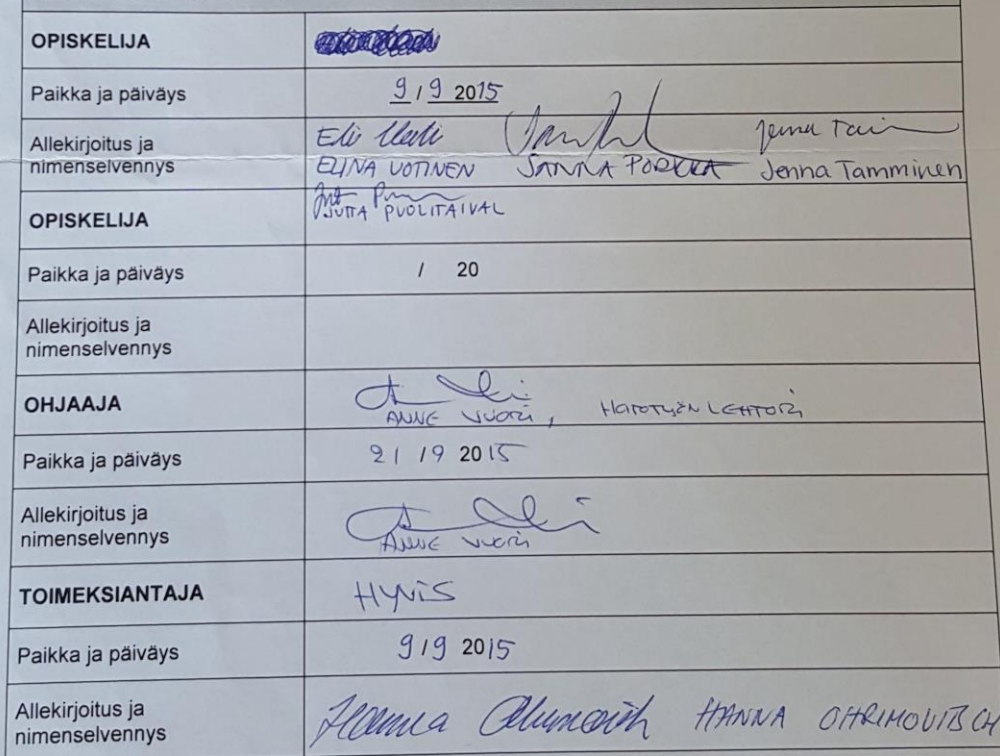 OPISKELIJA
Paikka ja päiväys 9 / 9 2015
Allekirjoitus ja
nimenselvennys ELINA UOTINEN SANNA PORKKA Jenna Tamminen
JUTTA PUOLITAIVAL
OPISKELIJA
Paikka ja päiväys / 20
Allekirjoitus ja
nimenselvennys
OHJAAJA
ANNE VUORI, HOITOTYÖN LEHTORI
Paikka ja päiväys 21 / 9 2015
Allekirjoitus ja
nimenselvennys ANNE VUORI
TOIMEKSIANTAJA HYVIS
Paikka ja päiväys 9 / 9 2015
Allekirjoitus ja
nimenselvennys HANNA OHRIMOVITSCH